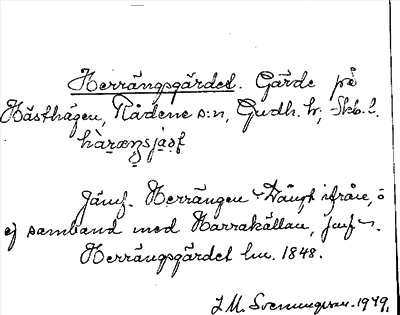 Herrängsgärdet. Gärde på
Hästhagen, Rådene s:n, Gudh. h., Skb. l.
hàræŋsjąṣf
Jämf. Herrängen. Långt ifrån, o
ej samband med Harrakällan, jmf
Herrängsgärdet lm. 1848.
I. M. Svenungsson. 1949.